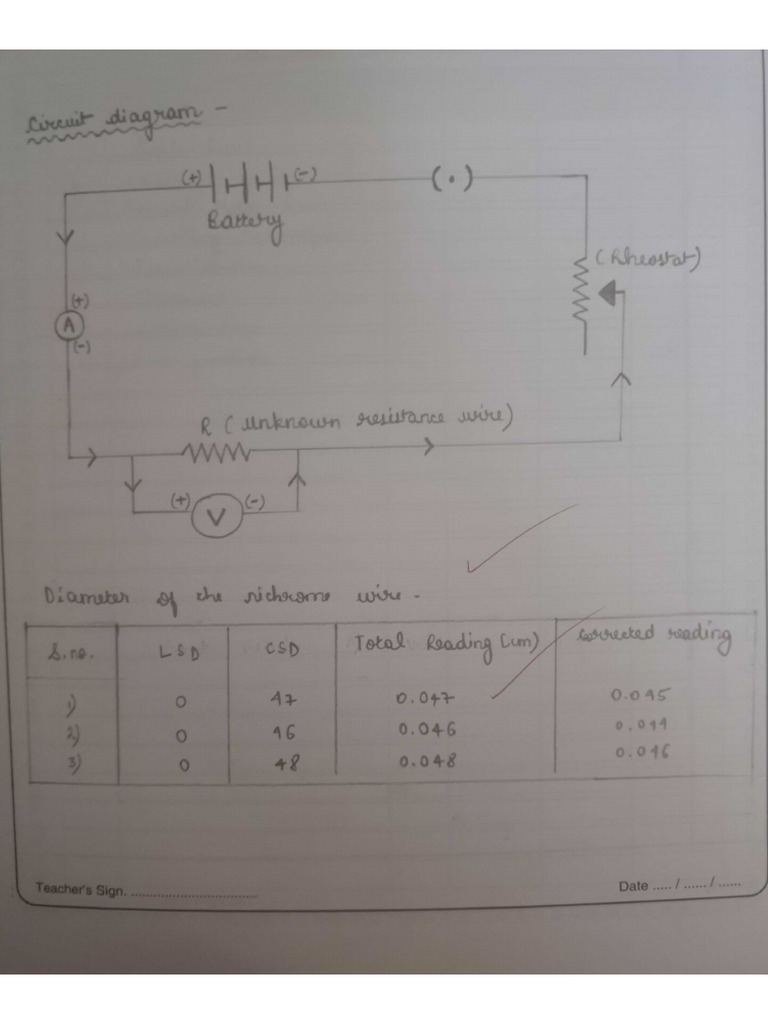 Circuit diagram -
(+) (-) (•)
Battery
(Rheostat)
(+)
A
(-)
R (unknown resistance wire)
(+) V (-)
Diameter of the nichrome wire -
S.no. LSD CSD Total Reading (cm) Corrected reading
1) 0 47 0.047 0.045
2) 0 46 0.046 0.044
3) 0 48 0.048 0.046
Teacher's Sign. ................................ Date ..... / ...... / ......